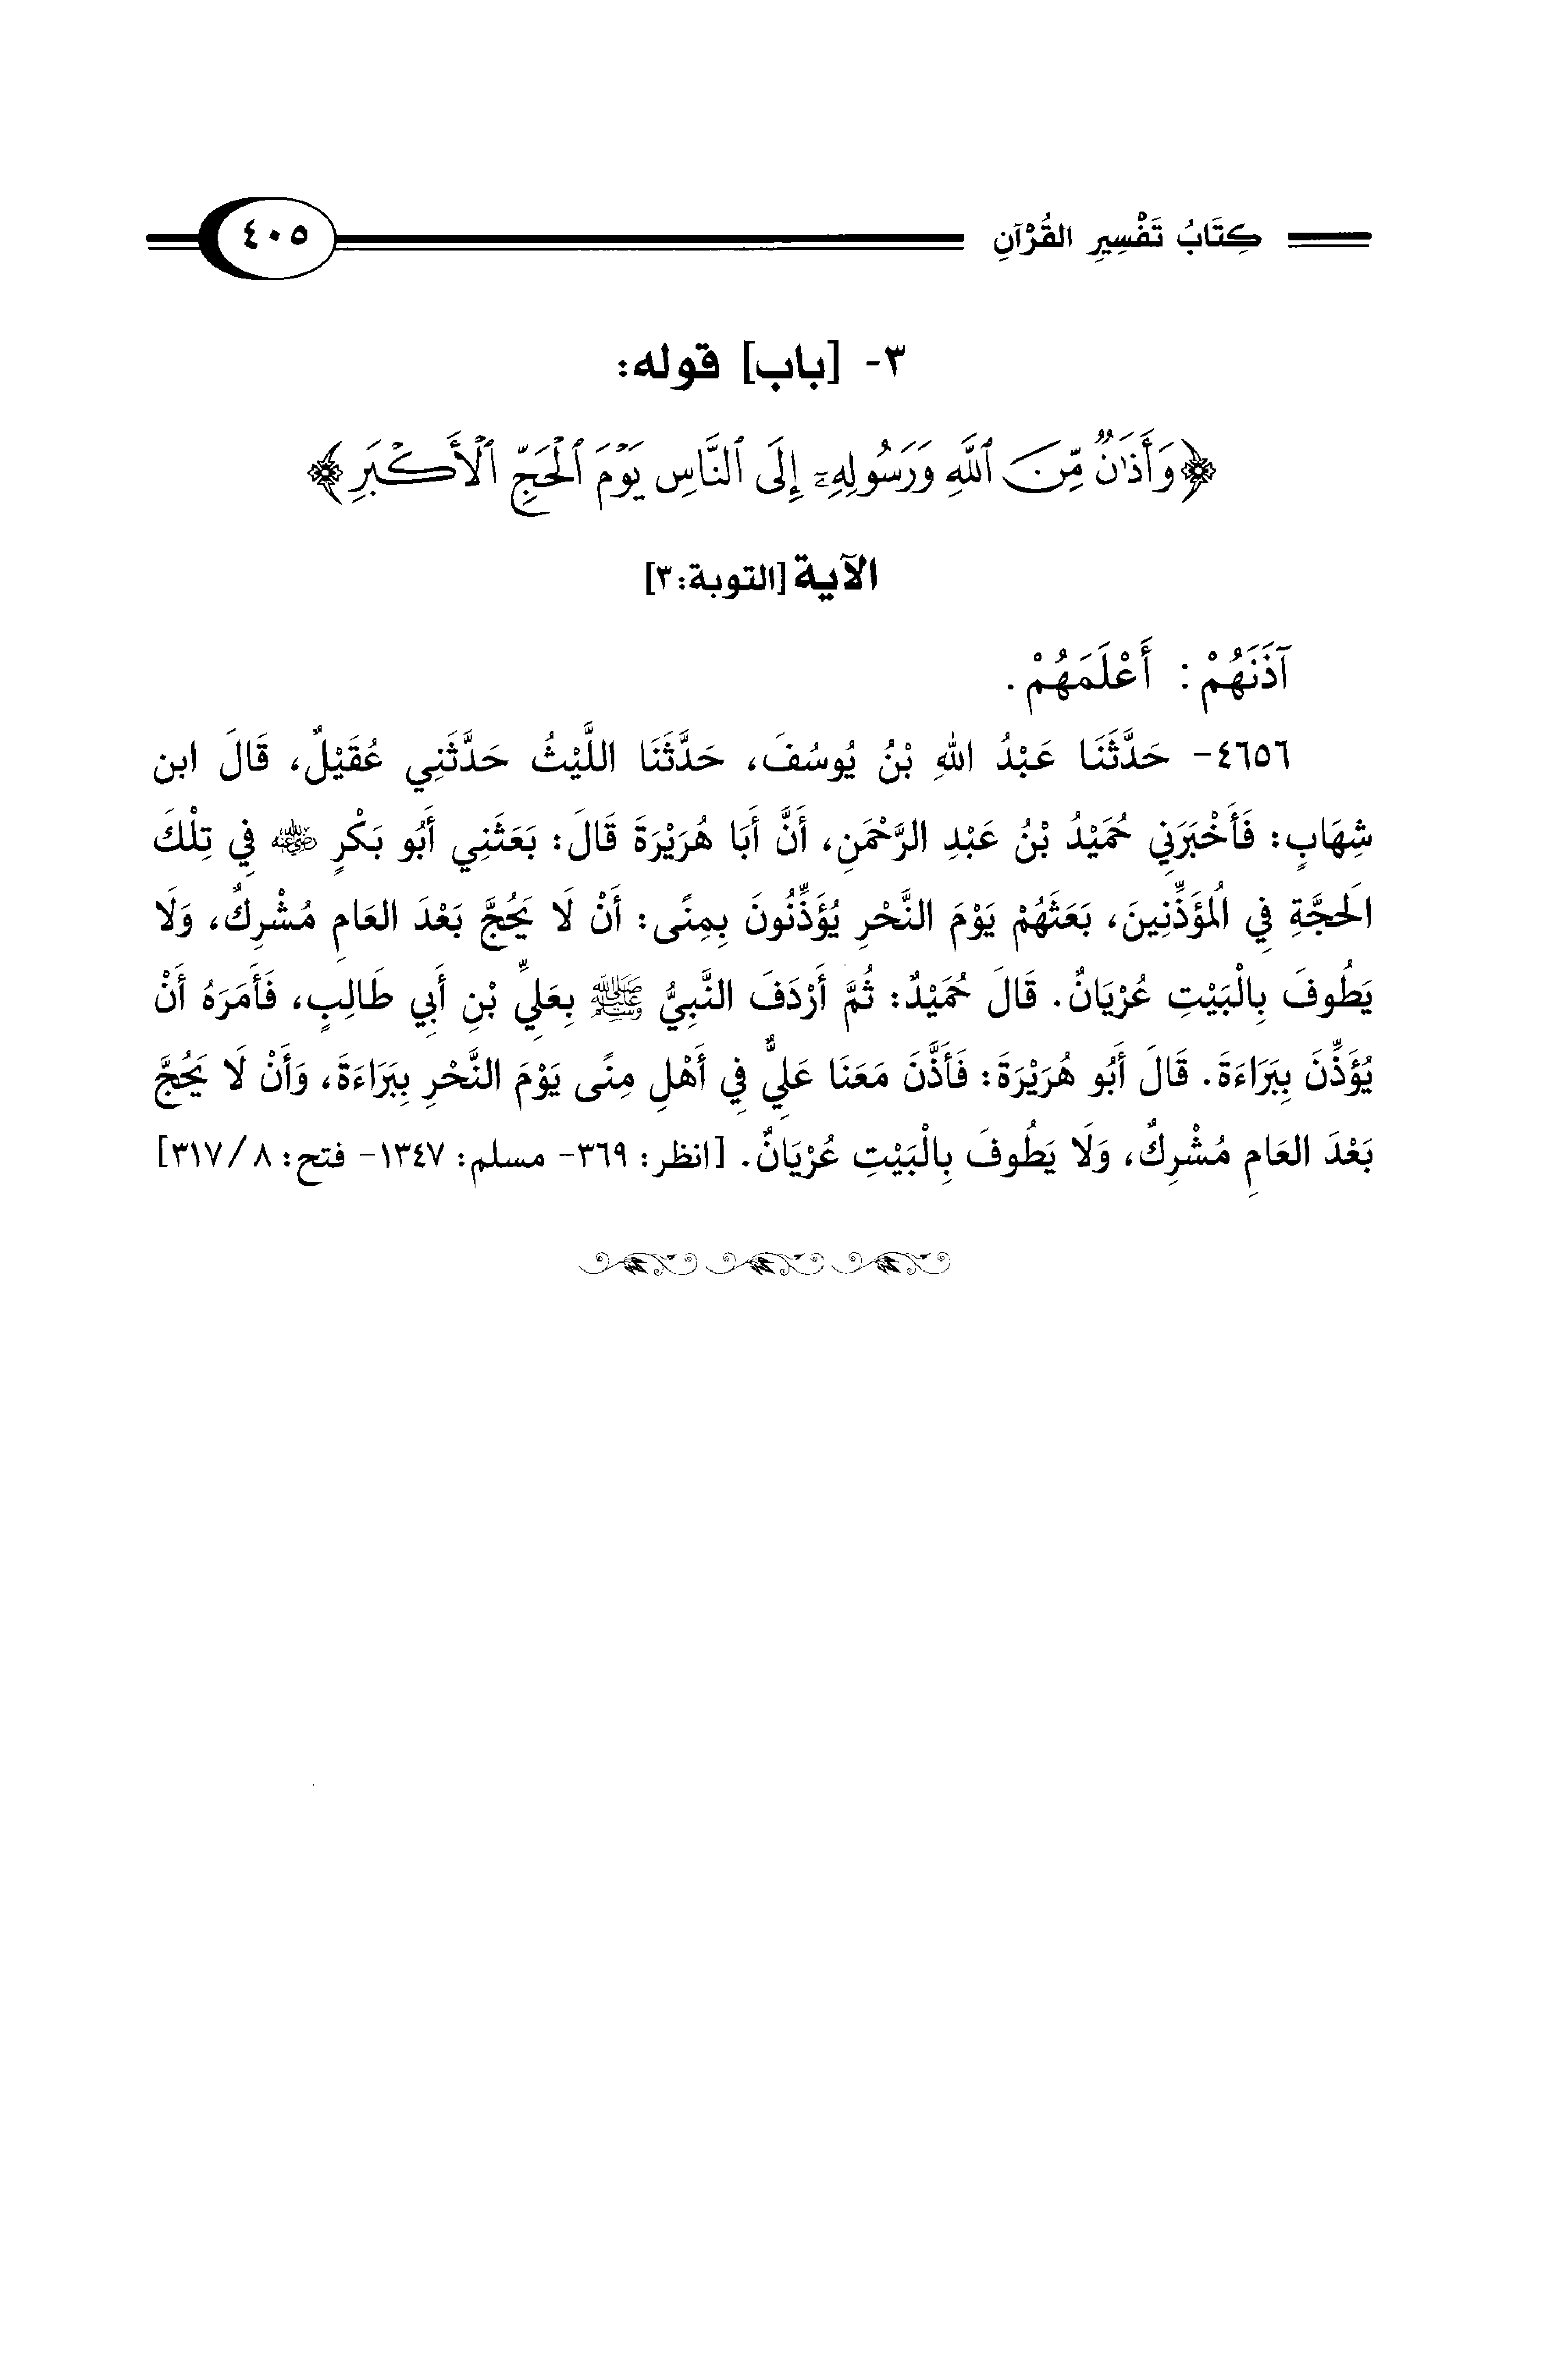 كِتَابُ تَفْسِيرِ القُرْآنِ
٤٠٥
٣- [باب] قوله:
﴿وَأَذَٰنٌ مِّنَ ٱللَّهِ وَرَسُولِهِۦٓ إِلَى ٱلنَّاسِ يَوْمَ ٱلْحَجِّ ٱلْأَكْبَرِ﴾
الآية [التوبة: ٣]
آذَنَهُمْ: أَعْلَمَهُمْ.
٤٦٥٦- حَدَّثَنَا عَبْدُ اللهِ بْنُ يُوسُفَ، حَدَّثَنَا اللَّيْثُ حَدَّثَنِي عُقَيْلٌ، قَالَ ابن
شِهَابٍ: فَأَخْبَرَنِي حُمَيْدُ بْنُ عَبْدِ الرَّحْمَنِ، أَنَّ أَبَا هُرَيْرَةَ قَالَ: بَعَثَنِي أَبُو بَكْرٍ رضي الله عنه فِي تِلْكَ
الَحجَّةِ فِي الُمؤَذِّنِينَ، بَعَثَهُمْ يَوْمَ النَّحْرِ يُؤَذِّنُونَ بِمِنًى: أَنْ لَا يَحُجَّ بَعْدَ العَامِ مُشْرِكٌ، وَلَا
يَطُوفَ بِالْبَيْتِ عُرْيَانٌ. قَالَ حُمَيْدٌ: ثُمَّ أَرْدَفَ النَّبِيُّ ﷺ بِعَلِيِّ بْنِ أَبِي طَالِبٍ، فَأَمَرَهُ أَنْ
يُؤَذِّنَ بِبَرَاءَةَ. قَالَ أَبُو هُرَيْرَةَ: فَأَذَّنَ مَعَنَا عَلِيٌّ فِي أَهْلِ مِنًى يَوْمَ النَّحْرِ بِبَرَاءَةَ، وَأَنْ لَا يَحُجَّ
بَعْدَ العَامِ مُشْرِكٌ، وَلَا يَطُوفَ بِالْبَيْتِ عُرْيَانٌ. [انظر: ٣٦٩- مسلم: ١٣٤٧- فتح: ٨/ ٣١٧]